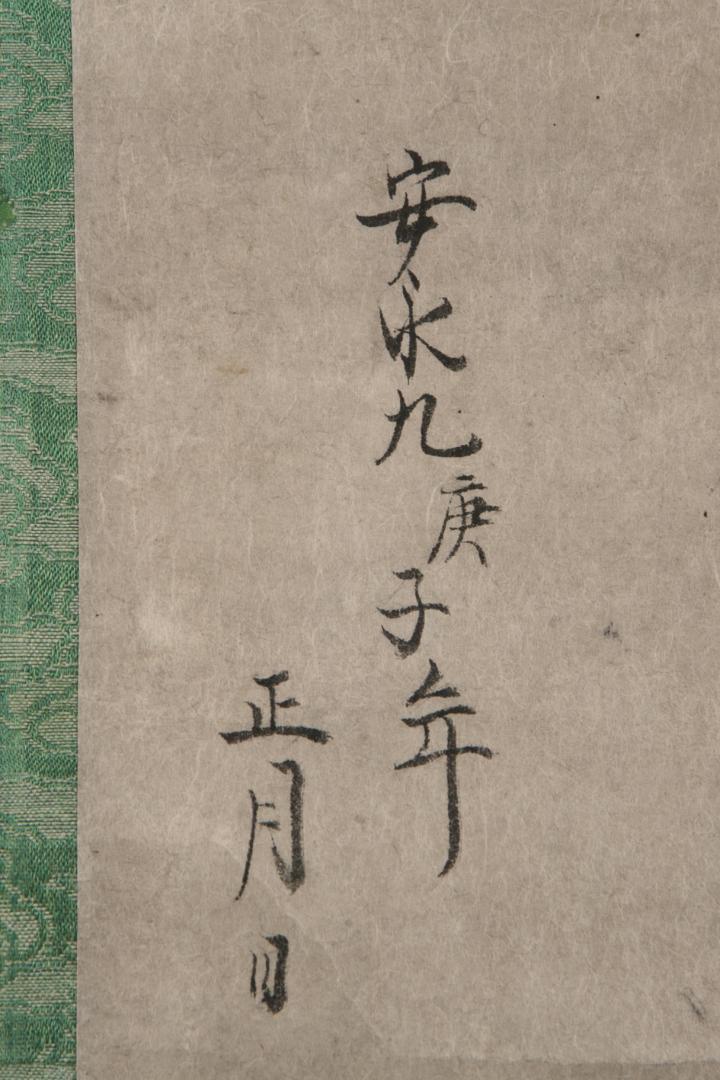 安永九庚子年
正月日